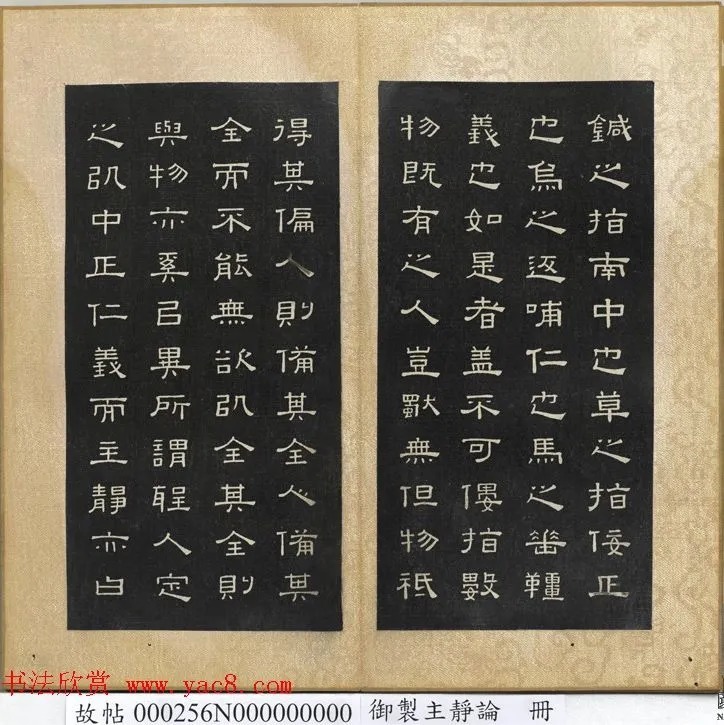 鍼之指南中也草之指佞正
也烏之返哺仁也馬之垂韁
義也如是者盖不可僂指數
物既有之人豈獨無但物祇
得其偏人則備其全人備其
全而不能無欲以全其全則
與物亦奚以異所謂聖人定
之以中正仁義而主靜亦白
书法欣赏 www.yac8.com
故帖 000256N000000000 御製主靜論 冊